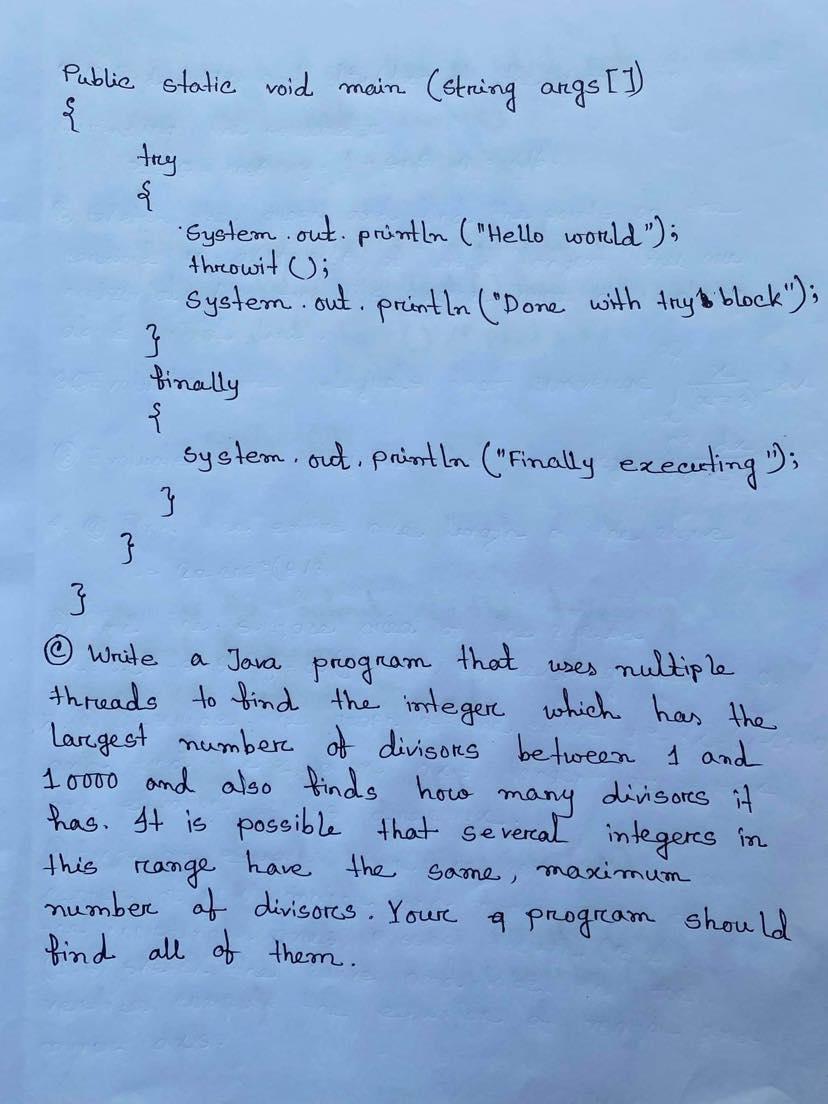 Public static void main (string args[])
{
try
{
System.out.println ("Hello world");
throwit ();
System.out.println ("Done with try block");
}
finally
{
system.out.println ("Finally executing");
}
}
}
(C) Write a Java program that uses nultiple
threads to find the integer which has the
largest number of divisors between 1 and
10000 and also finds how many divisors it
has. It is possible that several integers in
this range have the same, maximum
number of divisors. Your program should
find all of them.